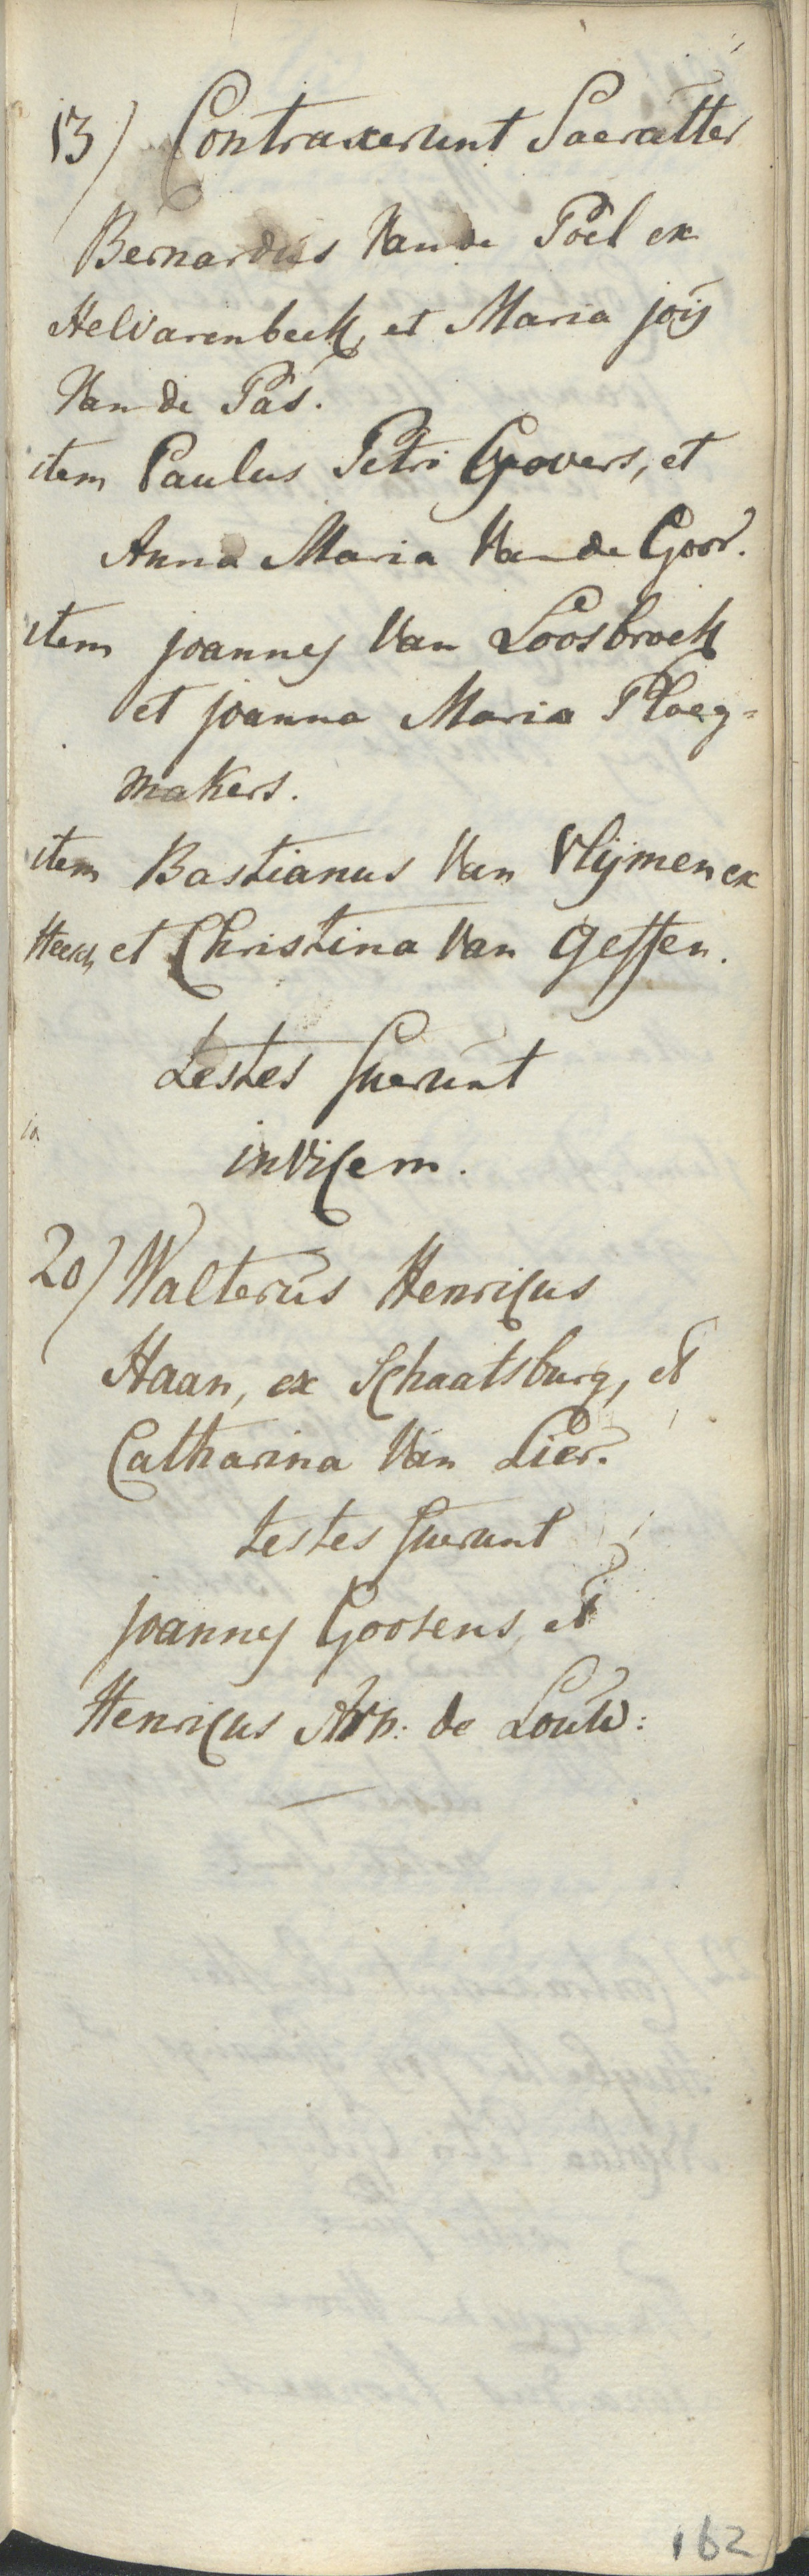 13) Contraxerunt Soleratter
Bernardus Van de Poel ex
Helvarenbeek, et Maria jois
Van de Pas.
item Paulus Petri Govers, et
Anna Maria Van de Goor.
item joannes Van Loosbroek
et joanna Maria Ploeg=
makers.
item Bastianus Van Vlijmen ex
Heesch et Christina Van Geffen.
testes fuerunt
invicem.
20) Walterus Henricus
Haan, ex Schaatsburg, et
Catharina Van Lier.
testes fuerunt
joannes Goosens, et
Henricus Arn: de Louw:
162